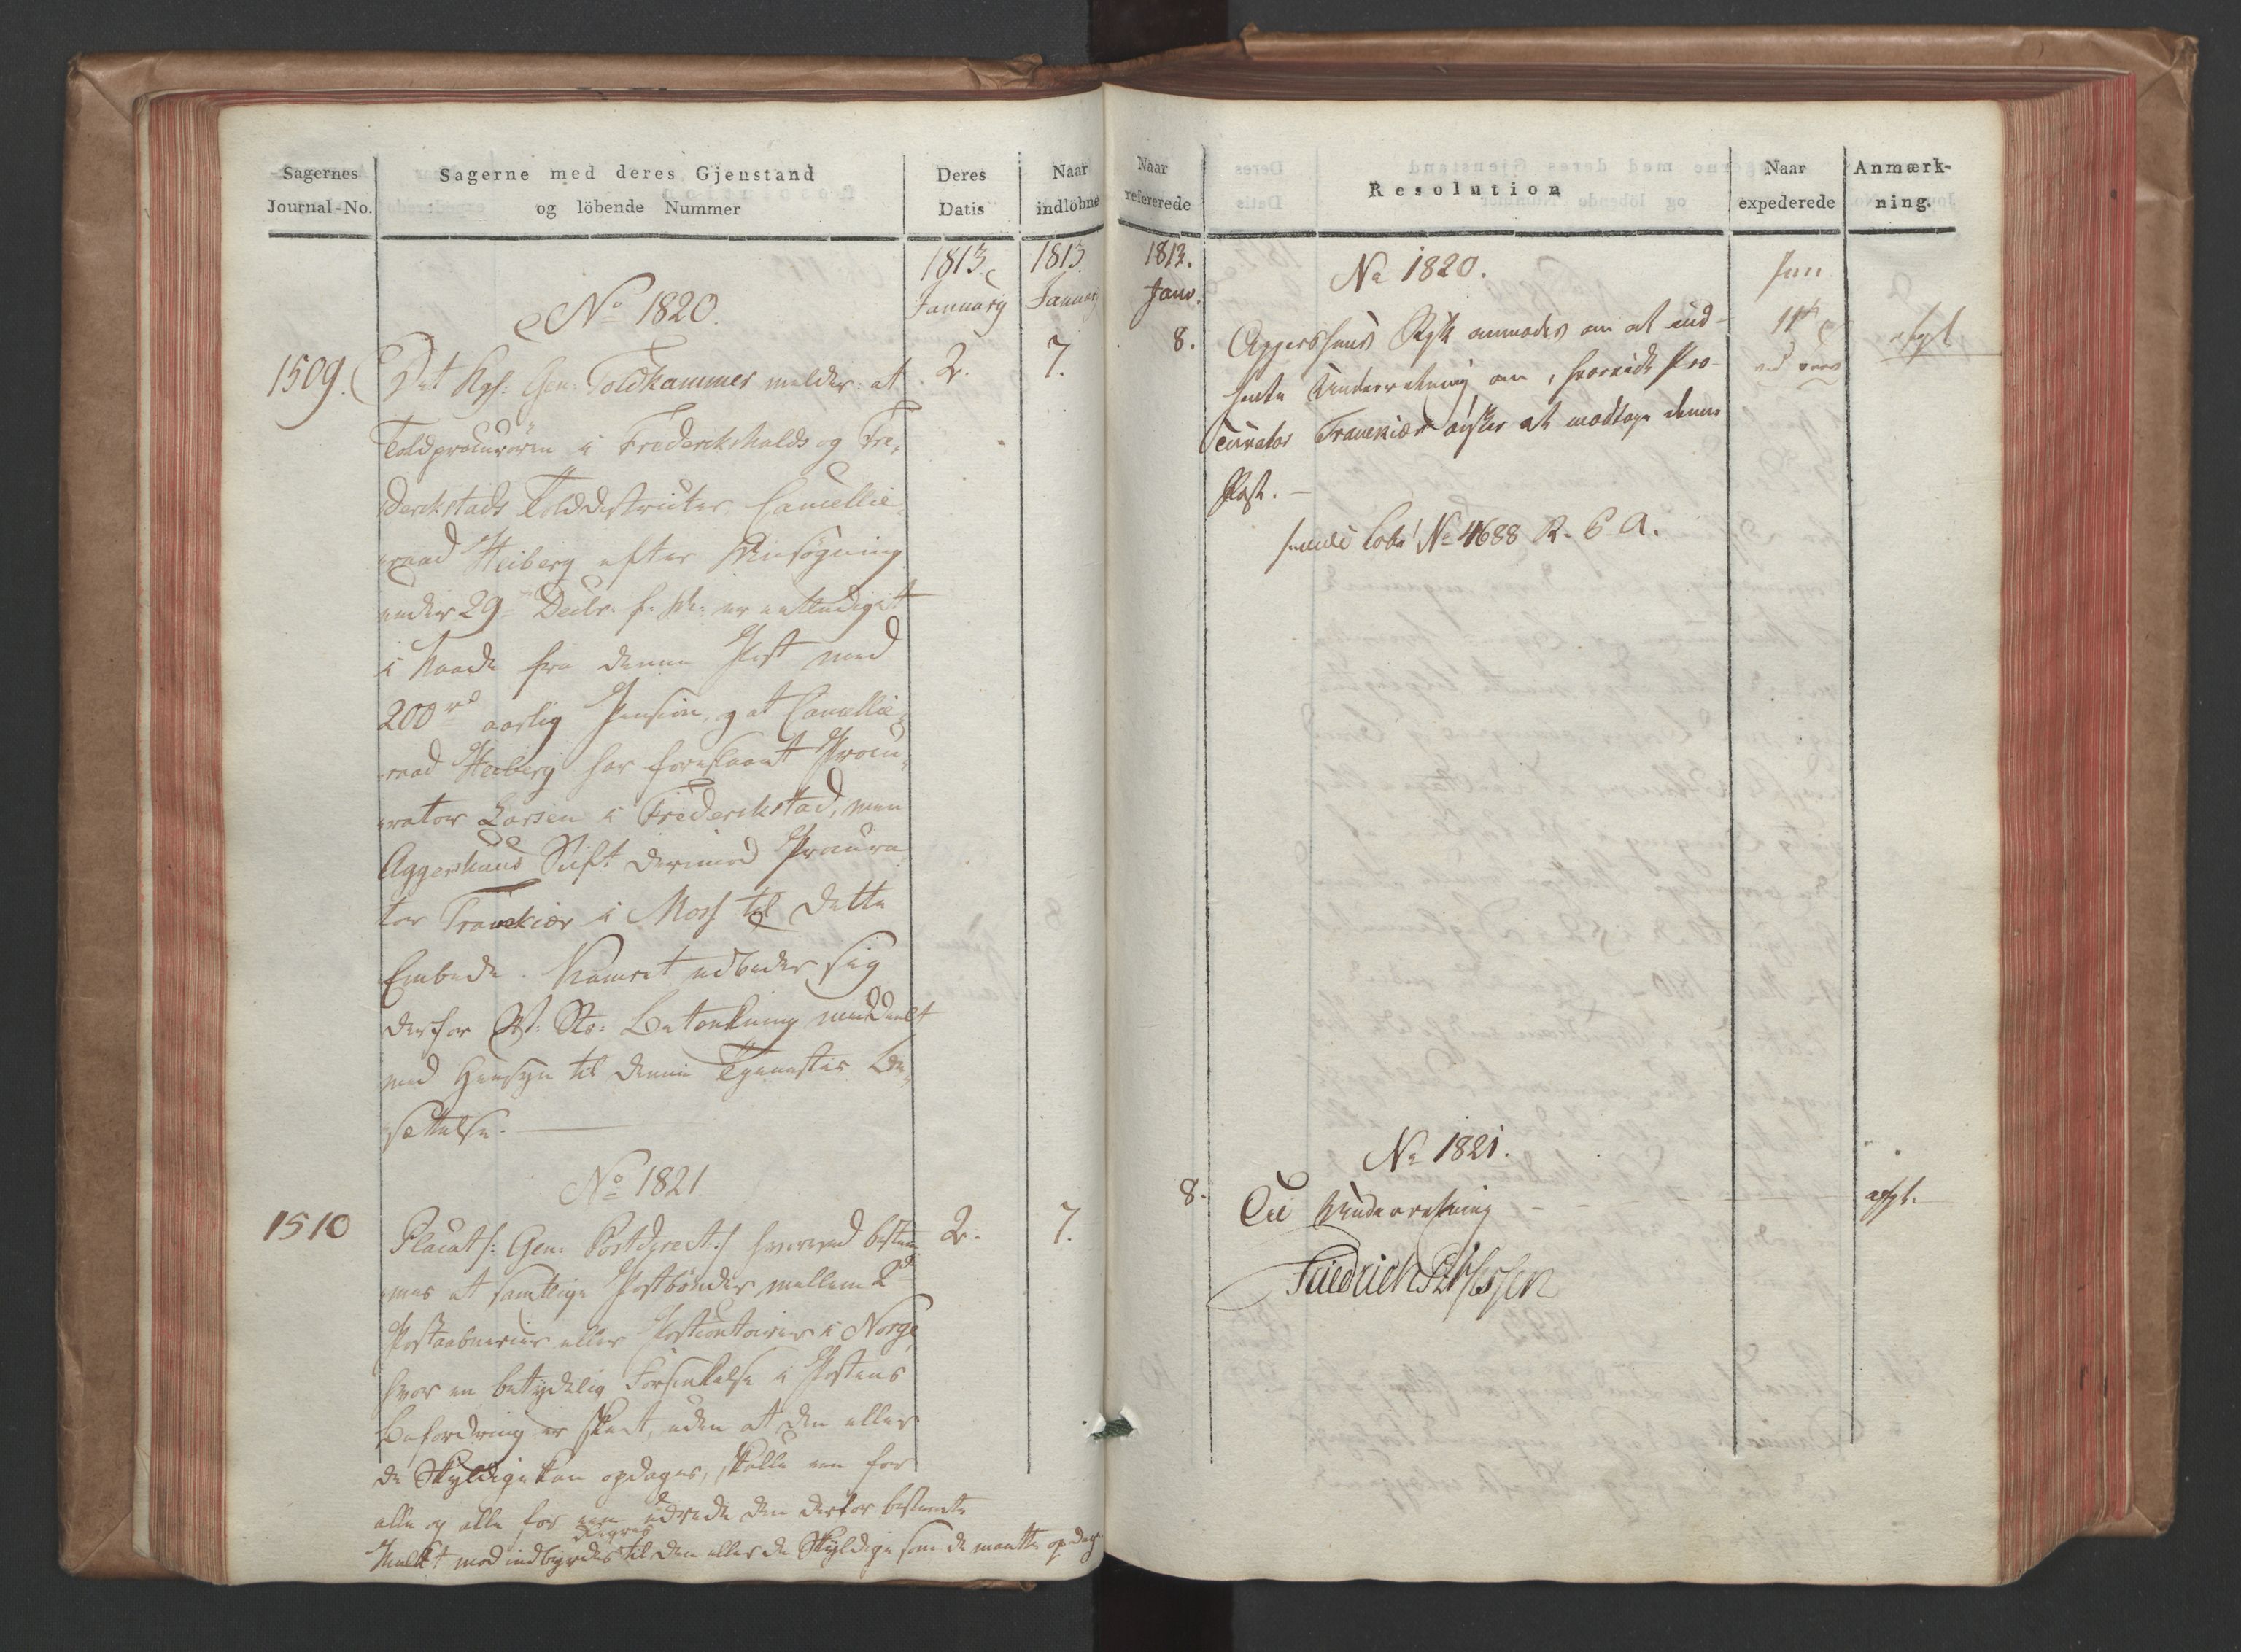 Sagernes
Journal-No.
Sagerne med deres Gjenstand
og löbende Nummer
Deres
Datis
Naar
indlöbne
1813.
January
1813.
January
No 1820.
1509.
2.
7.
Det Kgl: Gen: Toldkammer melder: at
Toldprocurøren i Frederikshalds og Fre-
derikstads Tolddistricter, Cancellie-
raad Heiberg efter Ansøgning
under 29de Decbr. f. A: er entlediget
i Naade fra denne Post med
200 rd aarlig Pension, og at Cancellie-
raad Heiberg har foreslaaet Procu-
rator Larsen i Frederikstad, men
Aggershuus Stift derimod Procura-
tor Tranekiær i Moss til dette
Embede. Kamret udbeder sig
derfor Betænkning meddeelt
med Hensyn til denne Tjenestes Be-
sættelse.
No 1821
1510
2.
7.
Placat f: Gen: Postdirect:/ hvorved bestem-
mes at samtlige Postbønder mellem 2de
Postaabnerier eller Postcontoirer i Norge,
hvor en betydelig Forsinkelse i Postens
Befordring er skeet, uden at den eller
de Skyldige kan opdages, skulle een for
alle og alle for een udrede den derfor bestemte
Mulkt mod indbyrdes Regres til den eller de Skyldige som de maatte opdage
Naar
refererede
Resolution
Naar
expederede
Anmærk-
ning.
1813.
Janv.
8.
No 1820.
Jan
11te
afgl
Aggershuus Stift anmodes om at ind-
hente Underretning om, hvorvidt Pro-
curator Tranekiær ønsker at modtage denne
Post.
No 4688 R. 6 A.
No 1821.
8.
Til Underretning
afgl.
Friedrich